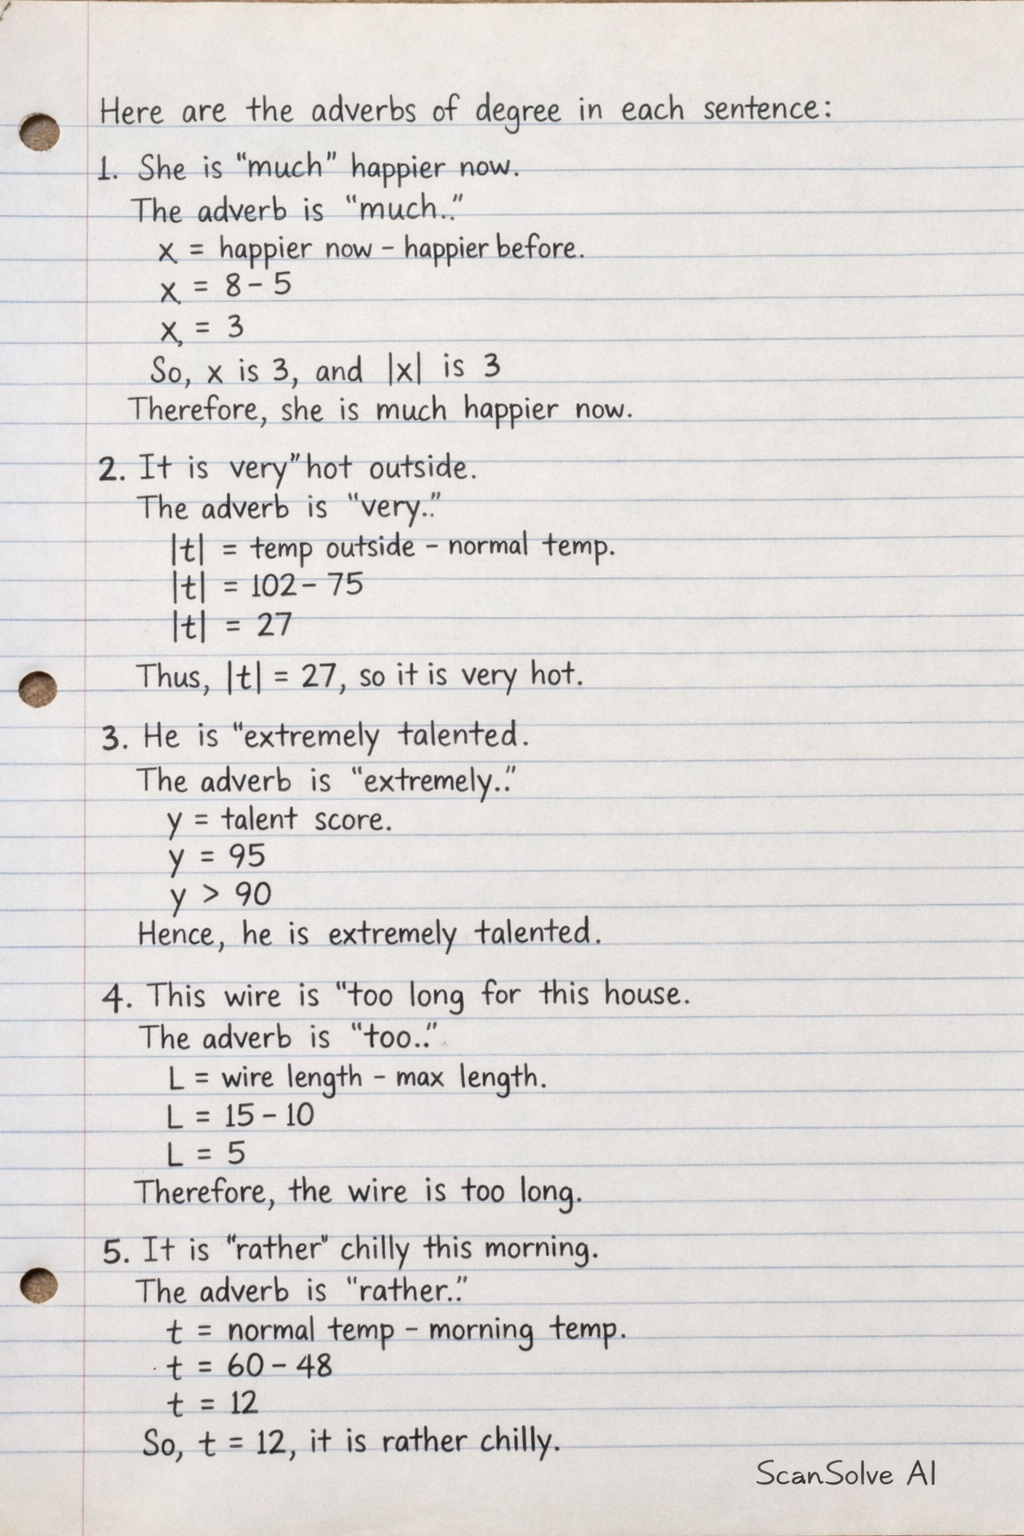 Here are the adverbs of degree in each sentence:
1. She is "much" happier now.
The adverb is "much.."
x = happier now - happier before.
x = 8 - 5
x, = 3
So, x is 3, and |x| is 3
Therefore, she is much happier now.
2. It is very" hot outside.
The adverb is "very.."
|t| = temp outside - normal temp.
|t| = 102 - 75
|t| = 27
Thus, |t| = 27, so it is very hot.
3. He is "extremely talented.
The adverb is "extremely.."
y = talent score.
y = 95
y > 90
Hence, he is extremely talented.
4. This wire is "too long for this house.
The adverb is "too.."
L = wire length - max length.
L = 15 - 10
L = 5
Therefore, the wire is too long.
5. It is "rather" chilly this morning.
The adverb is "rather.."
t = normal temp - morning temp.
t = 60 - 48
t = 12
So, t = 12, it is rather chilly.
ScanSolve AI